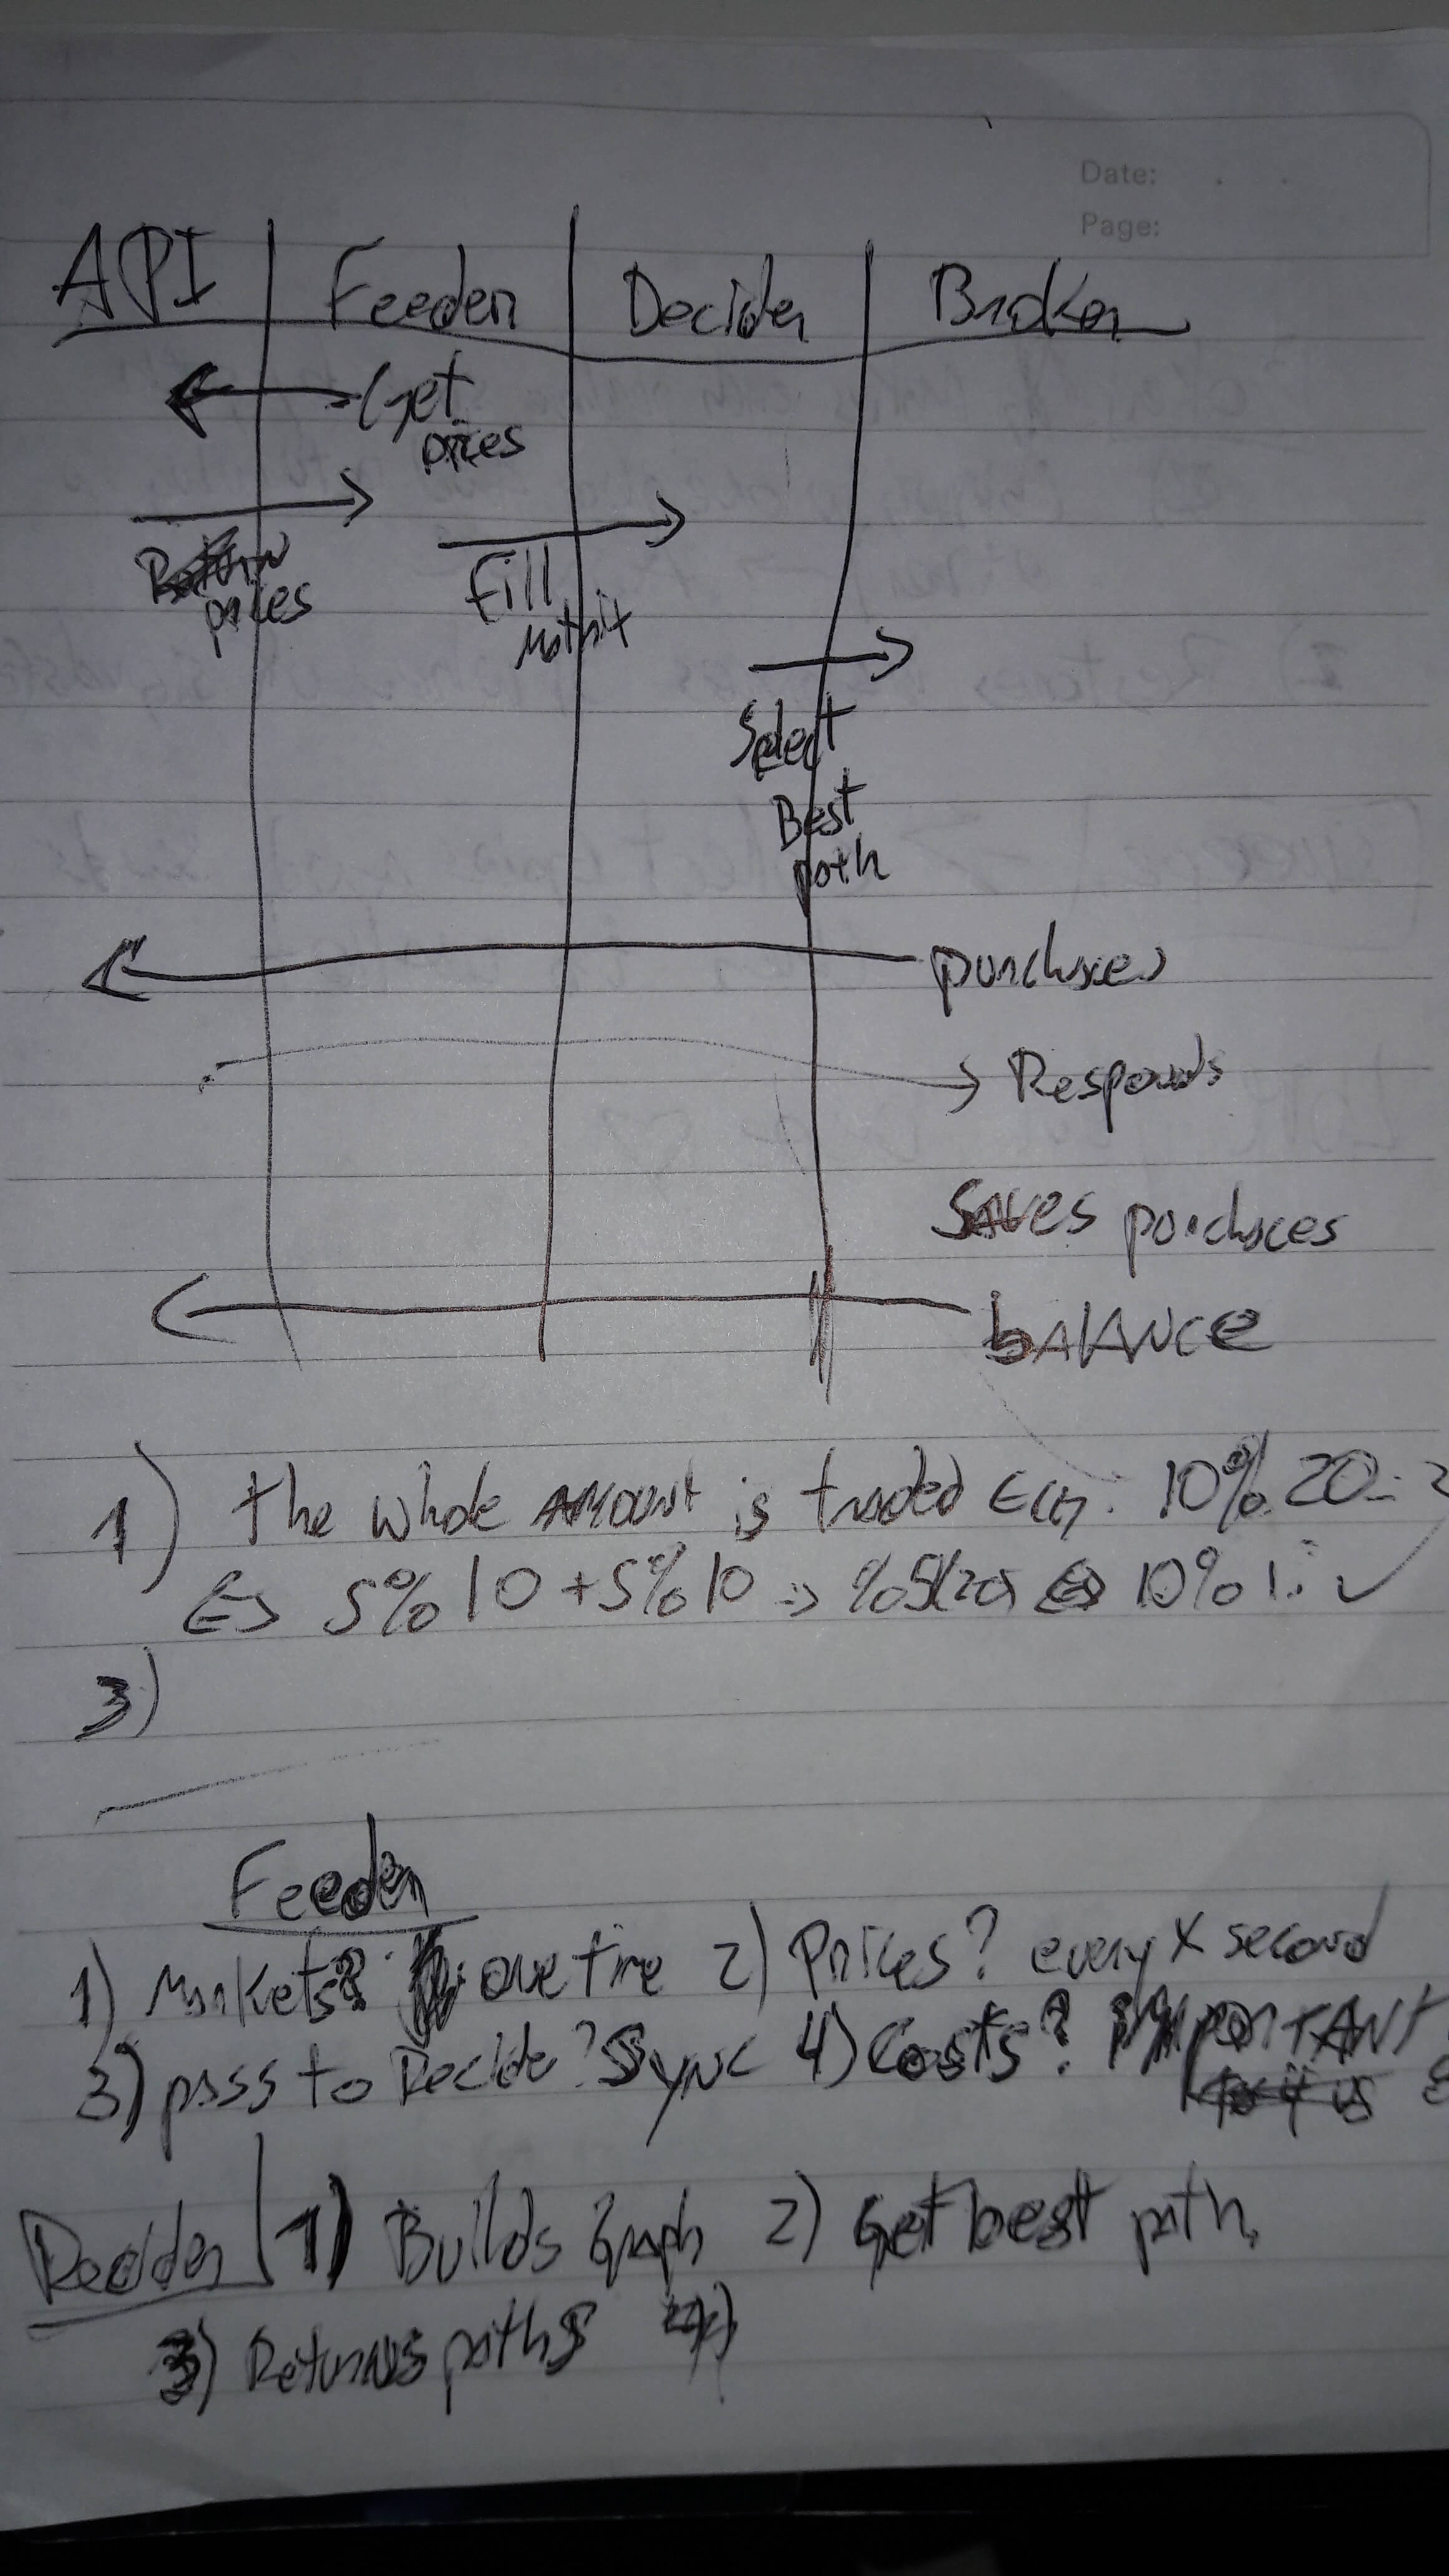 Date: . .
Page:
API Feeder Decider Broker
Get
prices
Return
prices
Fill
Select
Best
path
purchases
Responds
Saves purchaces
balance
1) the whole amount is traded 10% 20
5% 10 + 5% 10 10%
3)
Feeder
1) Markets? one time 2) Prices? every x second
3) pass to Decide? Sync 4) Costs? IMPORTANT
Decider 1) Builds Graph 2) Get best path.
3) Returns paths 4)